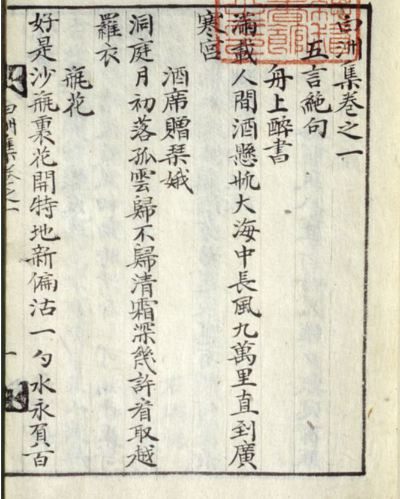 白洲集卷之一
五言絶句
舟上醉書
滿載人間酒懸帆大海中長風九萬里直到廣
寒宮
酒席贈琴娥
洞庭月初落孤雲歸不歸清霜深幾許看取越
羅衣
瓶花
好是沙瓶裏花開特地新偏沽一勺水永負百
白洲集卷之一
一